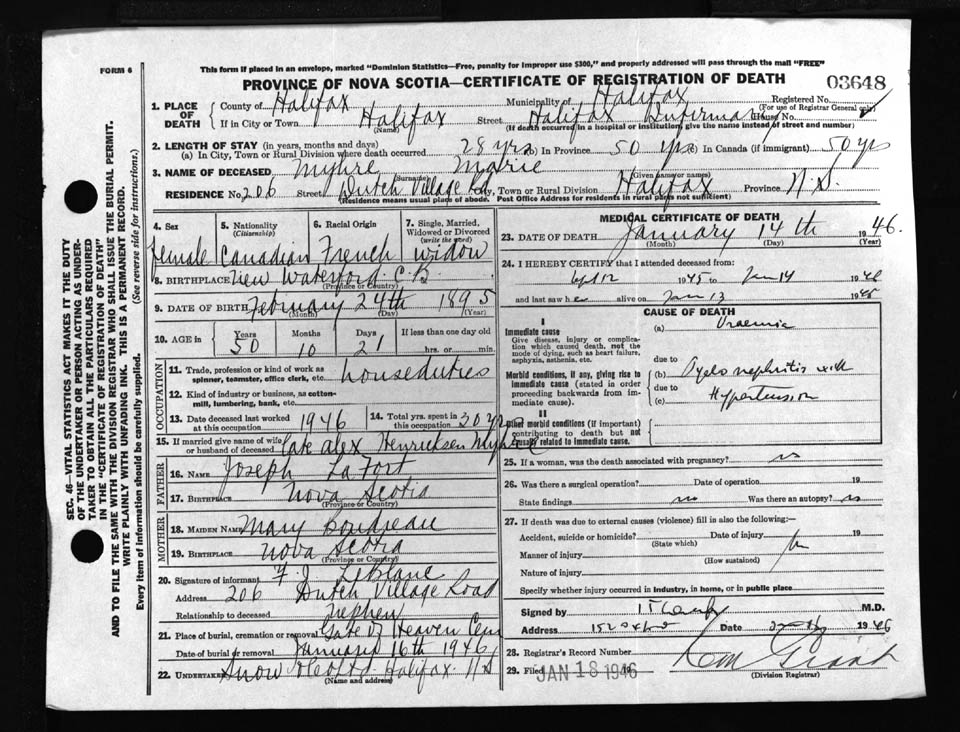 FORM 6
This form if placed in an envelope, marked "Dominion Statistics—Free, penalty for improper use $300," and properly addressed will pass through the mail "FREE"
PROVINCE OF NOVA SCOTIA—CERTIFICATE OF REGISTRATION OF DEATH
03648
1. PLACE OF DEATH County of Halifax Municipality of Halifax Registered No. (For use of Registrar General only)
If in City or Town Halifax (Name) Street Halifax Infirmary House No.
(If death occurred in a hospital or institution, give the name instead of street and number)
2. LENGTH OF STAY (in years, months and days)
(a) In City, Town or Rural Division where death occurred 28 yrs (b) In Province 50 yrs (c) In Canada (if immigrant) 50 yrs
3. NAME OF DECEASED Myhre (Surname) Marie (Given name or names)
RESIDENCE No. 206 Street Dutch Village Rd City, Town or Rural Division Halifax Province N.S.
(Residence means usual place of abode. Post Office Address for residents in rural parts not sufficient)
4. Sex female
5. Nationality (Citizenship) Canadian
6. Racial Origin French
7. Single, Married, Widowed or Divorced (write the word) widow
8. BIRTHPLACE New Waterford. C.B. (Province or Country)
9. DATE OF BIRTH February (Month) 24th (Day) 1895 (Year)
10. AGE in Years 50 Months 10 Days 21 If less than one day old hrs. or min.
OCCUPATION
11. Trade, profession or kind of work as spinner, teamster, office clerk, etc. houseduties
12. Kind of industry or business, as cotton-mill, lumbering, bank, etc.
13. Date deceased last worked at this occupation 1946
14. Total yrs. spent in this occupation 30 yrs
15. If married give name of wife or husband of deceased late Alex Henricksen Myhre
FATHER
16. NAME Joseph LaFort
17. BIRTHPLACE Nova Scotia (Province or Country)
MOTHER
18. MAIDEN NAME Mary Boudreau
19. BIRTHPLACE Nova Scotia (Province or Country)
20. Signature of informant F. J. LeBlanc
Address 206 Dutch Village Road
Relationship to deceased nephew
21. Place of burial, cremation or removal Gate of Heaven Cem
Date of burial or removal January 16th 1946
22. UNDERTAKER Snow Halifax. N.S (Name and address)
MEDICAL CERTIFICATE OF DEATH
23. DATE OF DEATH January (Month) 14th (Day) 1946. (Year)
24. I HEREBY CERTIFY that I attended deceased from:
Sept 12 1945 to Jan 14 1946
and last saw her alive on Jan 13 194
CAUSE OF DEATH
I
Immediate cause
Give disease, injury or complication which caused death, not the mode of dying, such as heart failure, asphyxia, asthenia, etc.
(a) Uraemia
due to
Morbid conditions, if any, giving rise to immediate cause (stated in order proceeding backwards from immediate cause).
(b) Pyelo nephritis with
due to
(c) Hypertension
II
Other morbid conditions (if important) contributing to death but not causally related to immediate cause.
25. If a woman, was the death associated with pregnancy? no
26. Was there a surgical operation? Date of operation 19
State findings no Was there an autopsy? no
27. If death was due to external causes (violence) fill in also the following:—
Accident, suicide or homicide? (State which) Date of injury 19
Manner of injury (How sustained)
Nature of injury
Specify whether injury occurred in industry, in home, or in public place
Signed by M.D.
Address Date 1946
28. Registrar's Record Number
29. Filed JAN 18 1946 Grant (Division Registrar)
SEC. 46—VITAL STATISTICS ACT MAKES IT THE DUTY OF THE UNDERTAKER OR PERSON ACTING AS UNDERTAKER TO OBTAIN ALL THE PARTICULARS REQUIRED IN THE "CERTIFICATE OF REGISTRATION OF DEATH" AND TO FILE THE SAME WITH THE DIVISION REGISTRAR WHO SHALL ISSUE THE BURIAL PERMIT.
WRITE PLAINLY WITH UNFADING INK. THIS IS A PERMANENT RECORD.
Every item of information should be carefully supplied. (See reverse side for instructions.)